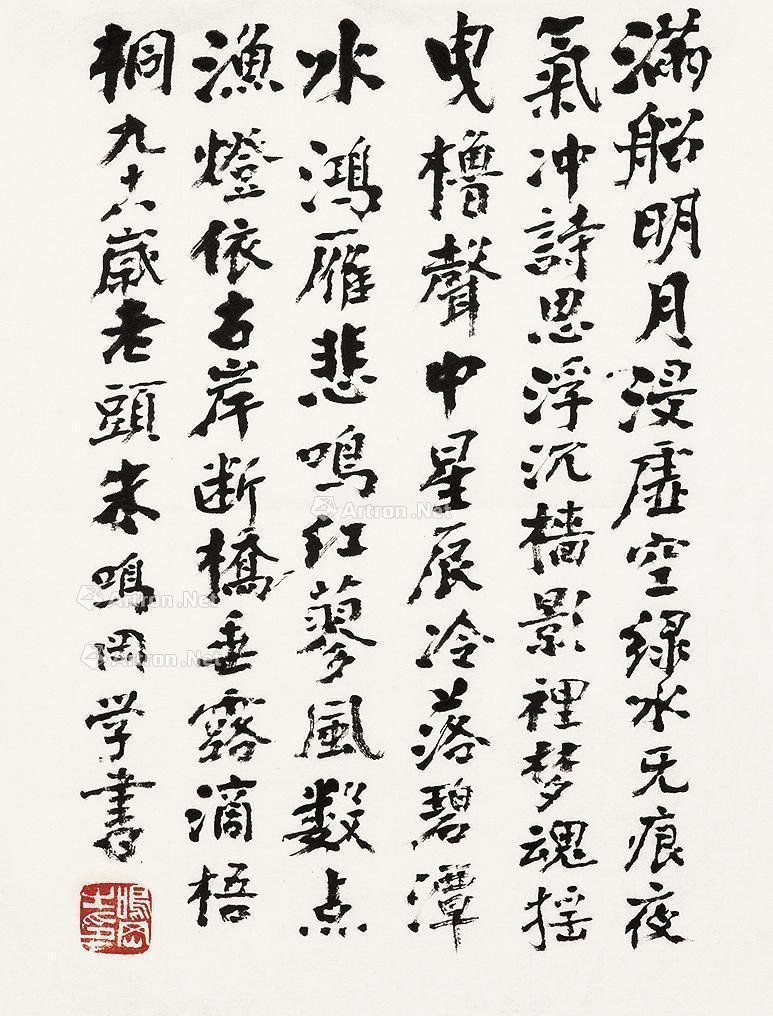 滿船明月浸虛空绿水无痕夜
氣冲詩思浮沉檣影裡梦魂摇
曳櫓聲中星辰冷落碧潭
水鴻雁悲鳴红蓼風数点
漁燈依古岸断橋垂露滴梧
桐九十八歲老頭朱鳴岡学書
Artron.Net
Artron.Net
Artron.Net